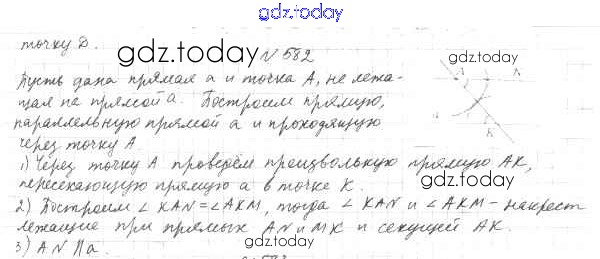 gdz.today
точку D.
gdz.today № 582
Пусть дана прямая a и точка A, не лежа-
щая на прямой a. Построим прямую,
параллельную прямой a и проходящую
через точку A.
gdz.today
1) Через точку A проведём произвольную прямую AK,
пересекающую прямую a в точке K.
gdz.today
2) Построим ∠ KAN = ∠ AKM, тогда ∠ KAN и ∠ AKM - накрест
лежащие при прямых AN и MK и секущей AK.
3) AN || a.
gdz.today
A
K